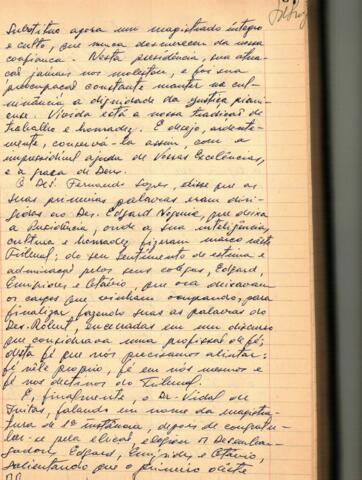 Substituo agora um magistrado íntegro
e culto, que nunca desmereceu da nossa
confiança. Nesta presidência, sua atua-
ção jamais nos molestou, e foi sua
preocupação constante manter na cul-
minância a dignidade da justiça piaui-
ense. Vivida está a nossa tradição de
trabalho e honradez. E desejo, ardente-
mente, conservá-la assim, com a
imprescindível ajuda de Vossas Excelências,
e a graça de Deus.
O Des. Fernando disse que as
suas primeiras palavras eram diri-
gidas ao Des. Edgard Nogueira, que deixa
a Presidência, onde a sua inteligência,
cultura e honradez fizeram marco neste
Tribunal; do seu sentimento de estima e
admiração pelos seus colegas, Edgard,
Eurípides e Otávio, que ora deixavam
os cargos que vinham ocupando, para
finalizar fazendo suas as palavras do
Des. Robert, encerradas em um discurso
que considerava uma profissão de fé;
desta fé que nós precisamos alentar:
fé nele próprio, fé em nós mesmos e
fé nos destinos do Tribunal.
E, finalmente, o Dr. Vidal de
Freitas, falando em nome da magistra-
tura de 1ª instância, depois de congratu-
lar-se pela eleição, elogiou os Desembar-
gadores, Edgard, Eurípides e Otávio,
salientando que o primeiro deste